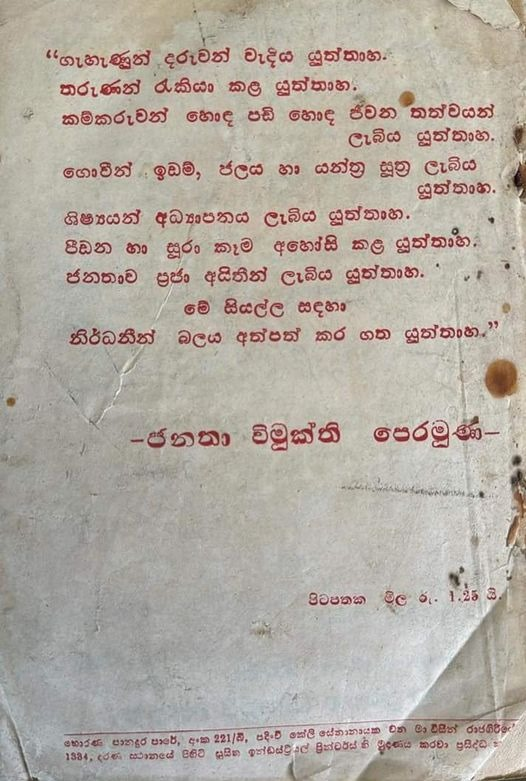 “ගැහැණුන් දරුවන් වැදිය යුත්තාහ.
තරුණන් රැකියා කළ යුත්තාහ.
කම්කරුවන් හොඳ පඩි හොඳ ජීවන තත්වයන්
ලැබිය යුත්තාහ.
ගොවීන් ඉඩම්, ජලය හා යන්ත්‍ර සූත්‍ර ලැබිය
යුත්තාහ.
ශිෂ්‍යයන් අධ්‍යාපනය ලැබිය යුත්තාහ.
පීඩන හා සූරා කෑම අහෝසි කළ යුත්තාහ.
ජනතාව ප්‍රජා අයිතීන් ලැබිය යුත්තාහ.
මේ සියල්ල සඳහා
නිර්ධනීන් බලය අත්පත් කර ගත යුත්තාහ.”
–ජනතා විමුක්ති පෙරමුණ–
පිටපතක මිල රු. 1.25 යි.
හොරණ පානදුර පාරේ, අංක 221/බී, පදිංචි කේලි සේනානායක වන මා විසින් රාජගිරියේ
1334, දරණ ස්ථානයේ පිහිටි සුසිත ඉන්ඩස්ට්‍රියල් ප්‍රින්ටර්ස් හි මුද්‍රණය කරවා ප්‍රසිද්ධ